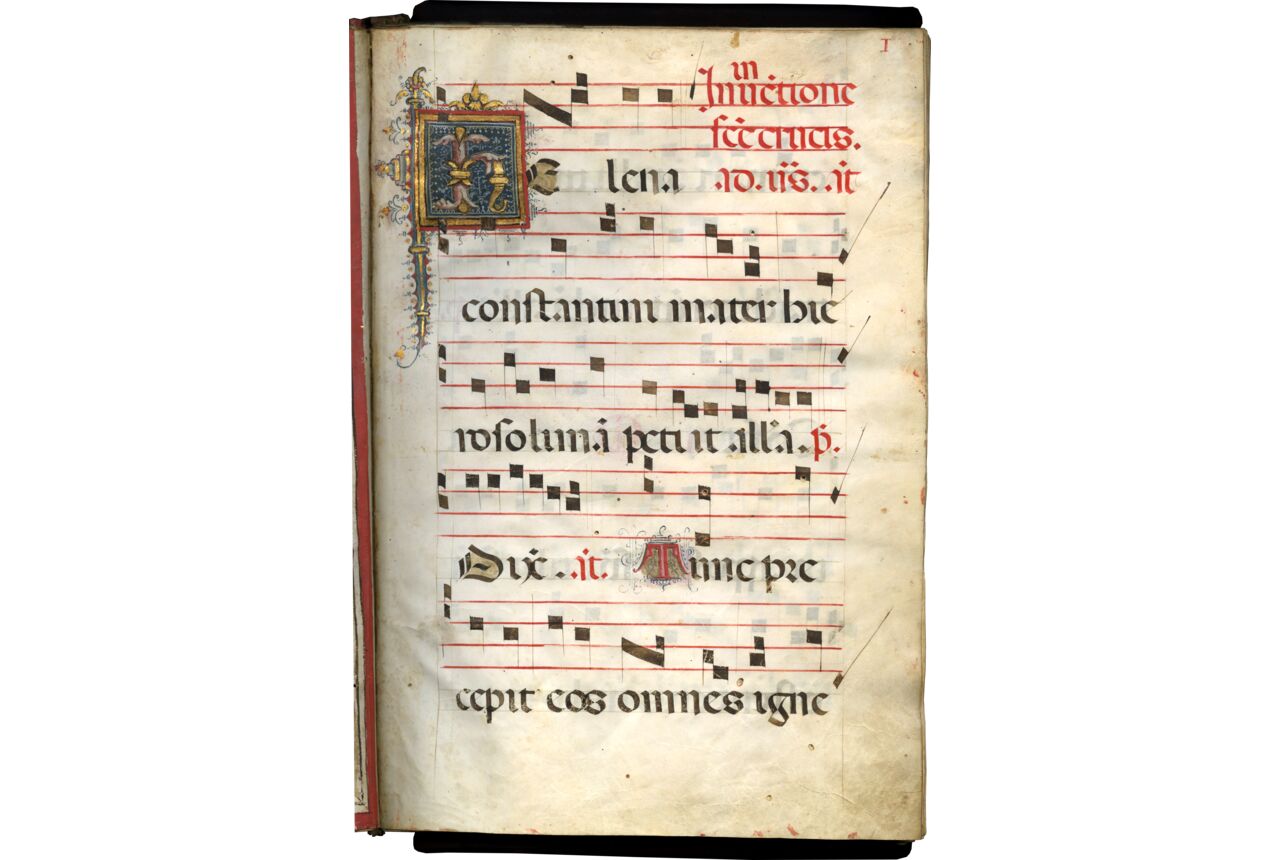 I
in
Inuētione
scē crucis.
HElena ad. uṡ. añ
constantini mater hie
rosolimā petiit all'a. p̄.
Dixē. añ. Tunc pre
cepit eos omnes igne